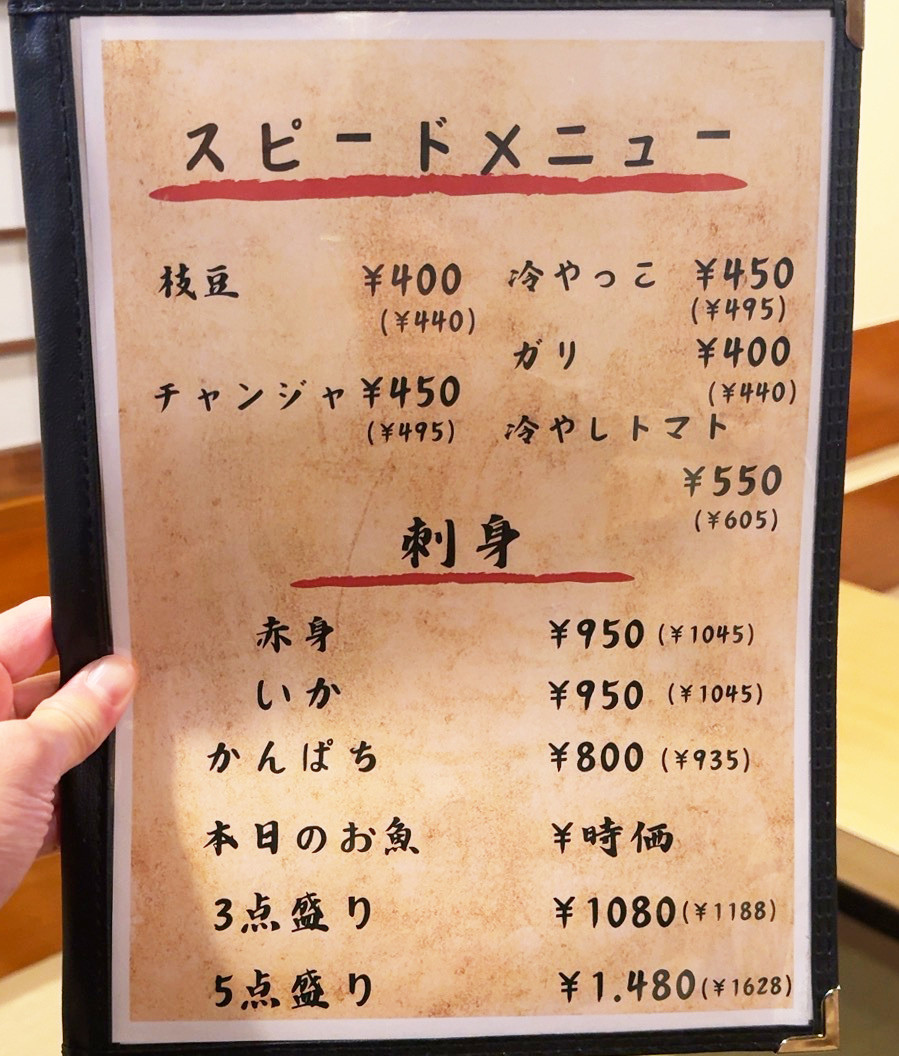 スピードメニュー
枝豆 ¥400
(¥440)
チャンジャ ¥450
(¥495)
冷やっこ ¥450
(¥495)
ガリ ¥400
(¥440)
冷やしトマト
¥550
(¥605)
刺身
赤身 ¥950 (¥1045)
いか ¥950 (¥1045)
かんぱち ¥800 (¥935)
本日のお魚 ¥時価
3点盛り ¥1080 (¥1188)
5点盛り ¥1.480 (¥1628)